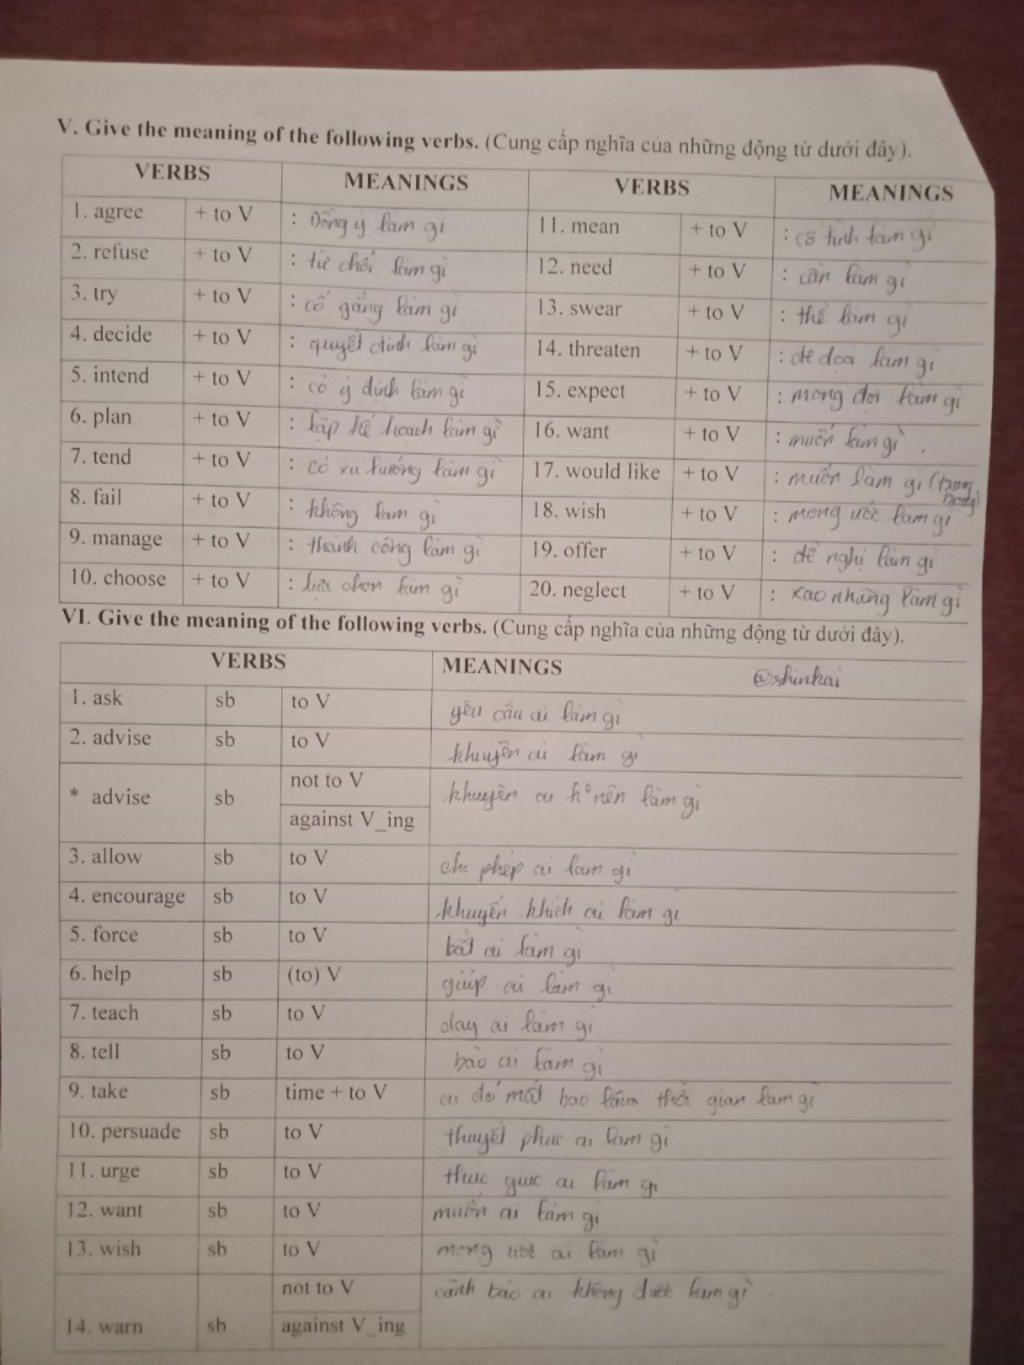 V. Give the meaning of the following verbs. (Cung cấp nghĩa của những động từ dưới đây).
VERBS MEANINGS VERBS MEANINGS
1. agree + to V : Đồng ý làm gì 11. mean + to V : cố tình làm gì
2. refuse + to V : từ chối làm gì 12. need + to V : cần làm gì
3. try + to V : cố gắng làm gì 13. swear + to V : thề làm gì
4. decide + to V : quyết định làm gì 14. threaten + to V : đe doạ làm gì
5. intend + to V : có ý định làm gì 15. expect + to V : mong đợi làm gì
6. plan + to V : lập kế hoạch làm gì 16. want + to V : muốn làm gì.
7. tend + to V : có xu hướng làm gì 17. would like + to V : muốn làm gì (trong
8. fail + to V : không làm gì 18. wish + to V : mong ước làm gì
9. manage + to V : thành công làm gì 19. offer + to V : đề nghị làm gì
10. choose + to V : lựa chọn làm gì 20. neglect + to V : xao nhãng làm gì
VI. Give the meaning of the following verbs. (Cung cấp nghĩa của những động từ dưới đây).
VERBS MEANINGS @shinkai
1. ask sb to V yêu cầu ai làm gì
2. advise sb to V khuyên ai làm gì
not to V
* advise sb khuyên ai k° nên làm gì
against V_ing
3. allow sb to V cho phép ai làm gì
4. encourage sb to V khuyến khích ai làm gì
5. force sb to V bắt ai làm gì
6. help sb (to) V giúp ai làm gì
7. teach sb to V dạy ai làm gì
8. tell sb to V bảo ai làm gì
9. take sb time + to V ai đó mất bao lâu thời gian làm gì
10. persuade sb to V thuyết phục ai làm gì
11. urge sb to V thúc giục ai làm gì
12. want sb to V muốn ai làm gì
13. wish sb to V mong ước ai làm gì
not to V cảnh báo ai không được làm gì
14. warn sb against V_ing